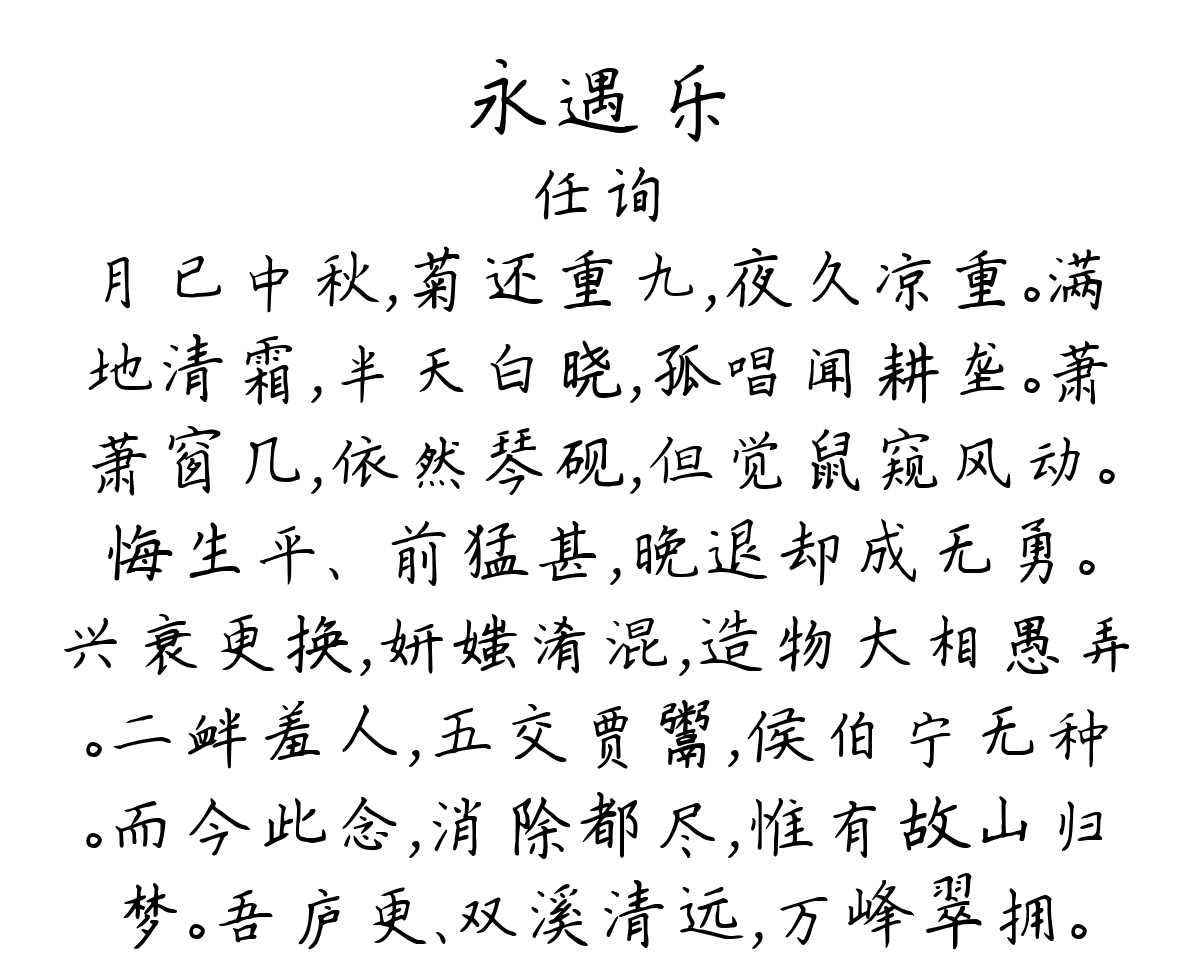 永遇乐
任询
月已中秋,菊还重九,夜久凉重。满
地清霜,半天白晓,孤唱闻耕垄。萧
萧窗几,依然琴砚,但觉鼠窥风动。
悔生平、前猛甚,晚退却成无勇。
兴衰更换,妍媸淆混,造物大相愚弄
。二衅羞人,五交贾鬻,侯伯宁无种
。而今此念,消除都尽,惟有故山归
梦。吾庐更、双溪清远,万峰翠拥。